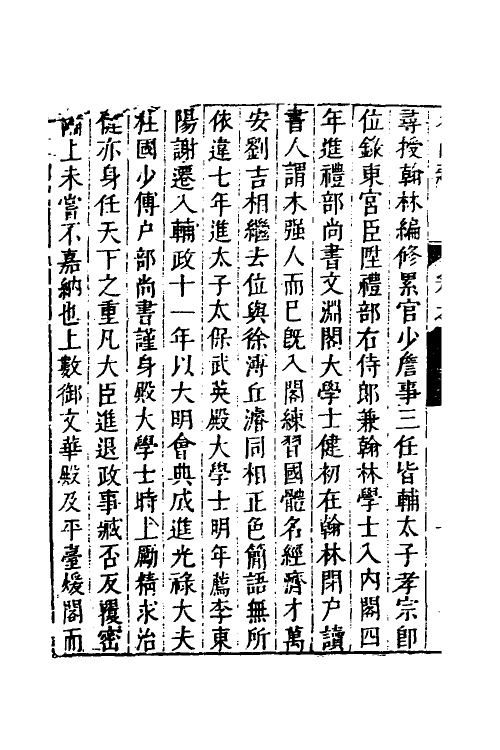 尋授翰林編修累官少詹事三任皆輔太子孝宗卽
位錄東宮臣陞禮部右侍郎兼翰林學士入內閣四
年進禮部尚書文淵閣大學士健初在翰林閉户讀
書人謂木强人而已既入閣練習國體名經濟才萬
安劉吉相繼去位與徐溥丘濬同相正色簡語無所
依違七年進太子太保武英殿大學士明年薦李東
陽謝遷入輔政十一年以大明會典成進光祿大夫
柱國少傅户部尚書謹身殿大學士時上勵精求治
健亦身任天下之重凡大臣進退政事臧否反覆密
上未嘗不嘉納也上數御文華殿及平臺煖閣而